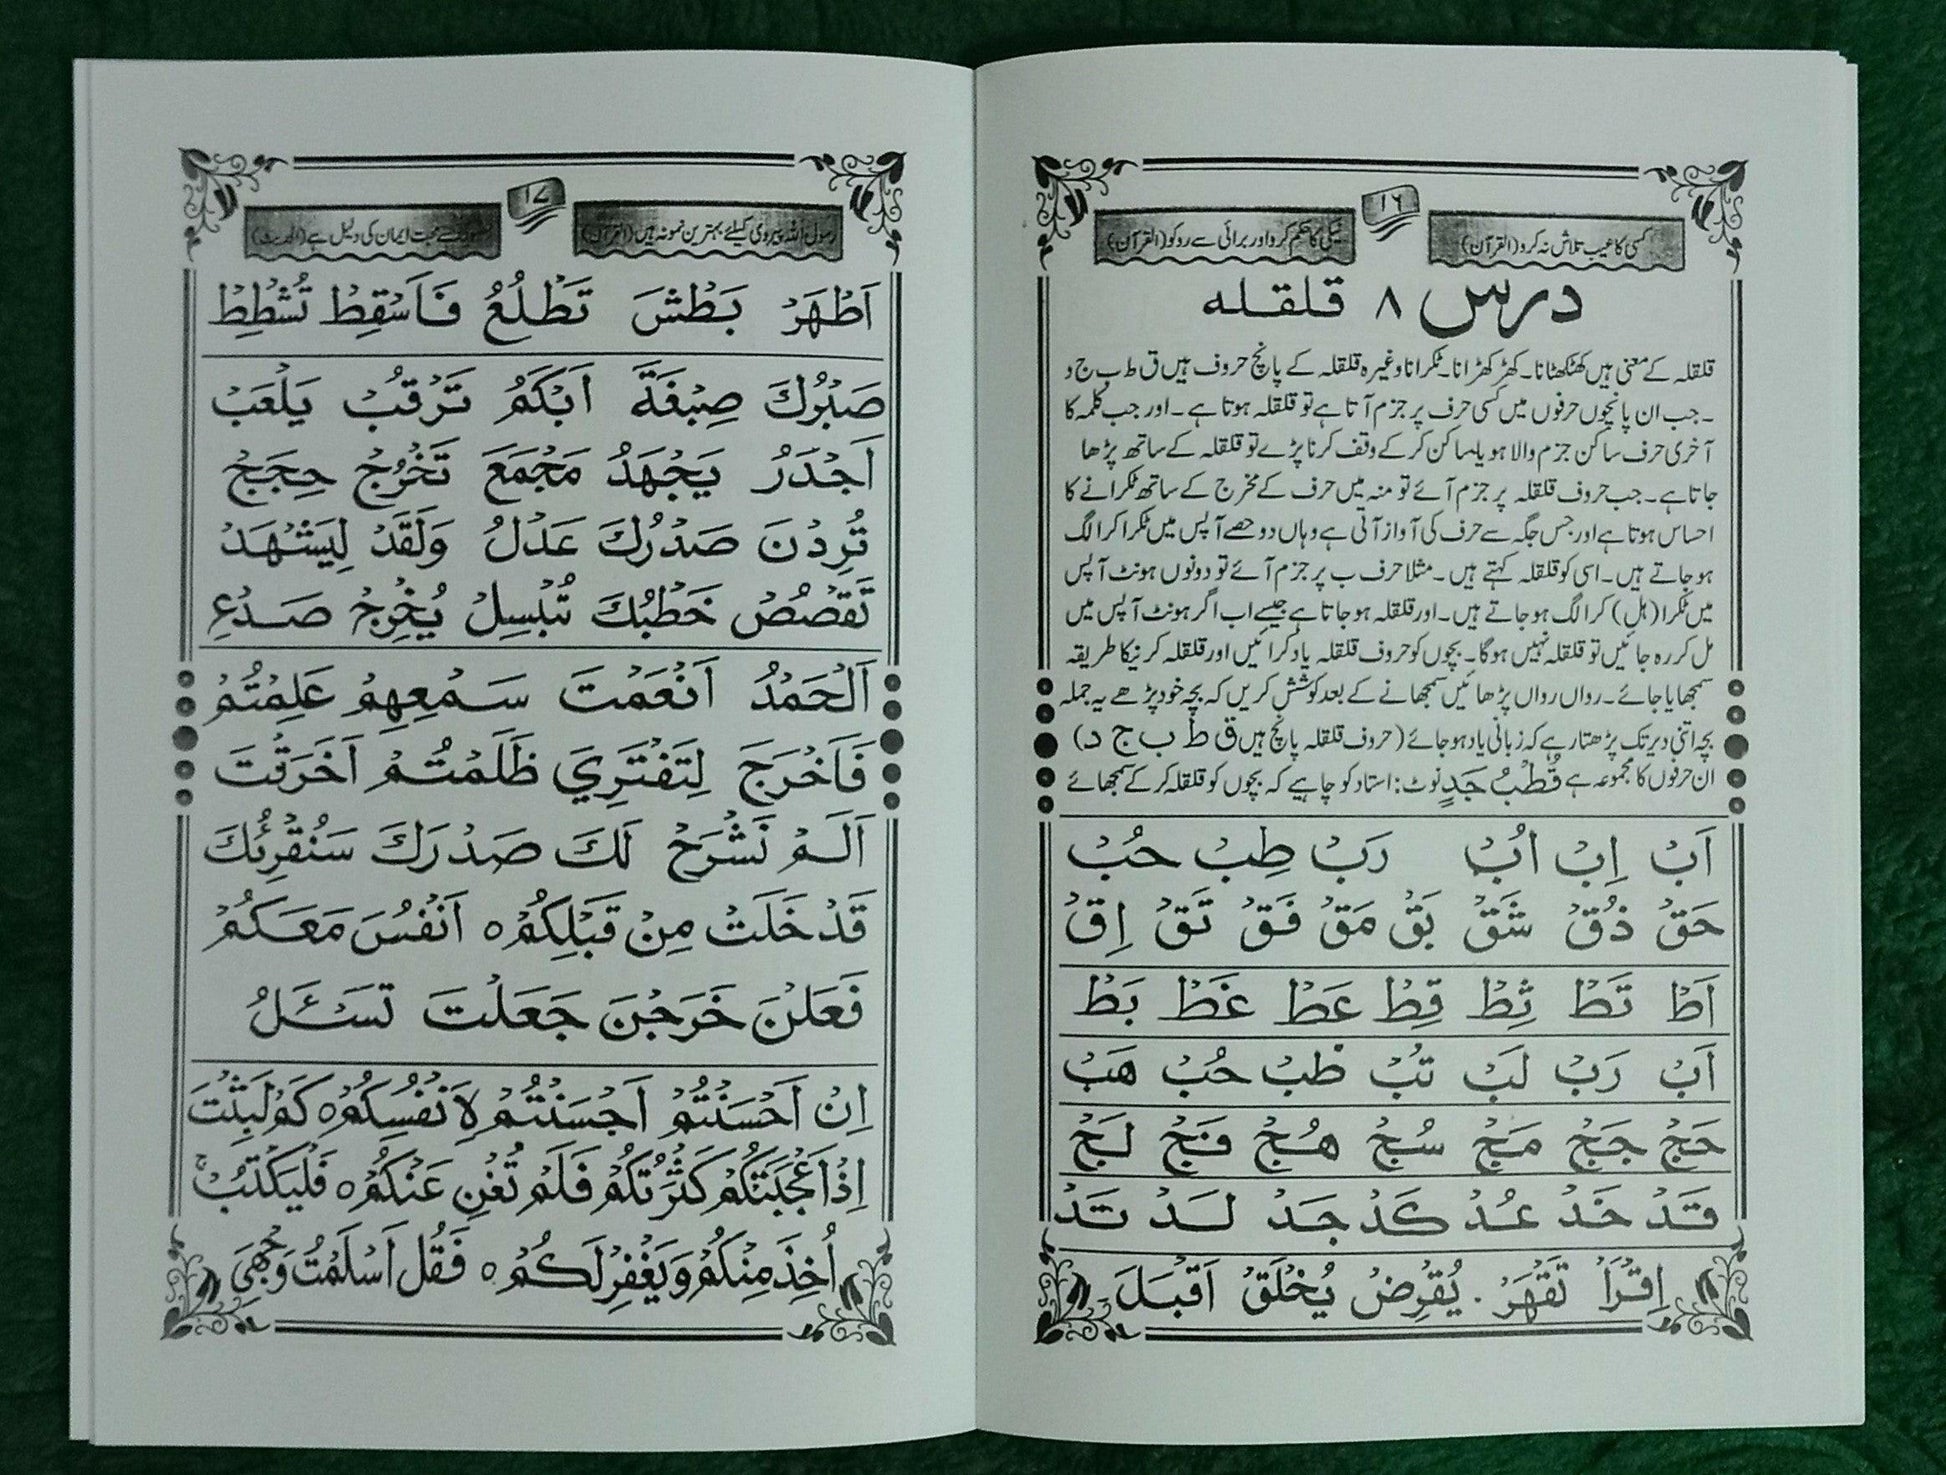 ۱۶
کسی کا عیب تلاش نہ کرو (القرآن)
نیکی کا حکم کرو اور برائی سے روکو (القرآن)
درس ۸ قلقلہ
قلقلہ کے معنی ہیں کھٹکھٹانا۔ کھڑکھڑانا۔ ٹکرانا وغیرہ قلقلہ کے پانچ حروف ہیں ق ط ب ج د
۔ جب ان پانچوں حرفوں میں کسی حرف پر جزم آتا ہے تو قلقلہ ہوتا ہے۔ اور جب کلمہ کا
آخری حرف ساکن جزم والا ہو یا ساکن کرکے وقف کرنا پڑے تو قلقلہ کے ساتھ پڑھا
جاتا ہے۔ جب حروف قلقلہ پر جزم آئے تو منہ میں حرف کے مخرج کے ساتھ ٹکرانے کا
احساس ہوتا ہے اور جس جگہ سے حرف کی آواز آتی ہے وہاں دو حصے آپس میں ٹکرا کر الگ
ہو جاتے ہیں۔ اسی کو قلقلہ کہتے ہیں۔ مثلا حرف ب پر جزم آئے تو دونوں ہونٹ آپس
میں ٹکرا (ہل) کر الگ ہو جاتے ہیں۔ اور قلقلہ ہو جاتا ہے جیسے اب اگر ہونٹ آپس میں
مل کر رہ جائیں تو قلقلہ نہیں ہوگا۔ بچوں کو حروف قلقلہ یاد کرائیں اور قلقلہ کرنیکا طریقہ
سمجھایا جائے۔ رواں رواں پڑھائیں سمجھانے کے بعد کوشش کریں کہ بچہ خود پڑھے یہ جملہ
بچہ اتنی دیر تک پڑھتا رہے کہ زبانی یاد ہو جائے (حروف قلقلہ پانچ ہیں ق ط ب ج د)
ان حرفوں کا مجموعہ ہے قُطْبُ جَدٍ نوٹ: استاد کو چاہیے کہ بچوں کو قلقلہ کر کے سمجھائے
اَبْ اِبْ اُبْ رَبْ طِبْ حُبْ
حَقْ ذُقْ شَقْ بَقْ مَقْ فَقْ تَقْ اِقْ
اَطْ تَطْ ثِطْ قِطْ عَطْ غَطْ بَطْ
اَبْ رَبْ لَبْ تُبْ طَبْ حُبْ هَبْ
حَجْ جَجْ مَجْ سُجْ هُجْ فَجْ لَجْ
قَدْ خَدْ عُدْ كَدْ جَدْ لَدْ تَدْ
اِقْرَأْ تَقْهَرْ. يُقْرِضُ يُخْلَقْ اَقْبَلَ
۱۷
رسول اللہ پیروی کیلئے بہترین نمونہ ہیں (القرآن)
سے محبت ایمان کی دلیل ہے (الحدیث)
اَطْهَرْ بَطْشَ تَطْلُعُ فَاَسْقِطْ تُشْطِطْ
صَبْرُكَ صِبْغَةَ اَبْكَمُ تَرْقُبْ يَلْعَبْ
اَجْدَرُ يَجْهَدُ مَجْمَعَ تَخْرُجْ حِجَجْ
تُرِدْنَ صَدْرُكَ عَدْلُ وَلَقَدْ لِيَشْهَدْ
تَقْصُصْ خَطْبُكَ تُبْسِلْ يُخْرِجْ صَدْعِ
اَلْحَمْدُ اَنْعَمْتَ سَمْعِهِمْ عَلِمْتُمْ
فَاَخْرَجَ لِتَفْتَرِيَ ظَلَمْتُمْ اَخَرَقْتَ
اَلَمْ نَشْرَحْ لَكَ صَدْرَكَ سَنُقْرِئُكَ
قَدْ خَلَتْ مِنْ قَبْلِكُمْ ہ اَنْفُسَ مَعَكُمْ
فَعَلْنَ خَرَجْنَ جَعَلْتَ تَسْـَٔلُ
اِنْ اَحْسَنْتُمْ اَحْسَنْتُمْ لِاَنْفُسِكُمْ ہ كَمْ لَبِثْتَ
اِذْ اَعْجَبَتْكُمْ كَثْرَتُكُمْ فَلَمْ تُغْنِ عَنْكُمْ ہ فَلْيَكْتُبْ
اُخِذَ مِنْكُمْ وَيَغْفِرْ لَكُمْ ہ فَقُلْ اَسْلَمْتُ وَجْهِيَ